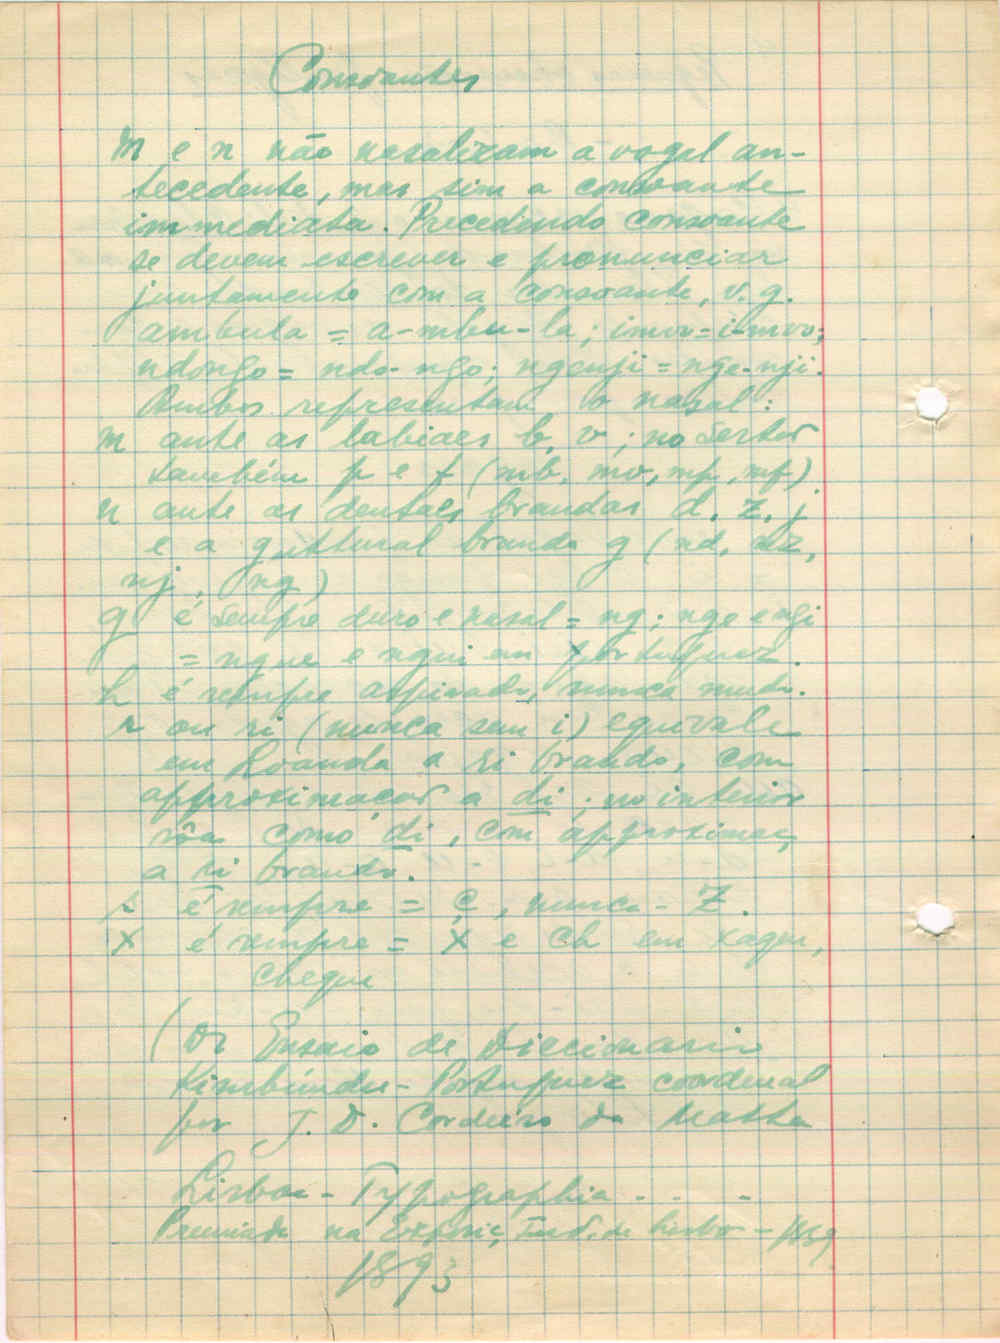 Consoantes
M e n não nasalizam a vogal an-
tecedente, mas sim a consoante
immediata. Precedindo consoante
se devem escrever e pronunciar
juntamente com a consoante, v. g.
ambula = a-mbu-la; imvo = i-mvo;
ndongo = ndo-ngo; ngenji = nge-nji.
Ambos representam o nasal:
m ante as labiaes b, v; no sertão
também p e f (mb, mv, mp, mf)
n ante as dentaes brandas d, z, j
e a guttural branda g (nd, nz,
nj, ng)
g é sempre duro e nasal = ng; nge e ngi
= ngue e ngui em portuguez.
h é sempre aspirado, nunca mudo.
r ou ri (nunca sem i) equivale
em Loanda a ri brando, com
approximação a di; no interior
sôa como di, com approximaç
a ri brando.
s é sempre = ç, nunca - z.
X é sempre = X e ch em xague,
chegue
(Do Ensaio de Diccionario
Kimbúndu - Portuguez coordenad
por J. D. Cordeiro da Matta
Lisboa - Typographia . . -
Premiada na Exposiç. Ind. de Lisboa -
1893